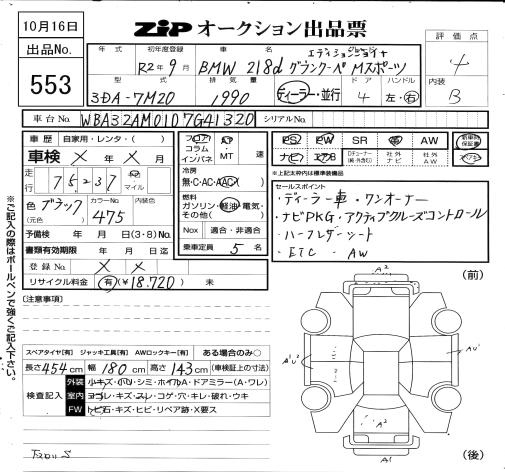 10月16日
ZIP オークション出品票
出品No.
553
年式 初年度登録 車名
エディションジョイ+
R2年9月 BMW 218d グランクーペ Mスポーツ
型式 排気量 ドア ハンドル
3DA-7M20 1,990 ディーラー・並行 4 左・右
評価点
4
内装
B
車台No. WBA32AM0107G41320 シリアルNo.
車歴 自家用・レンタ・( )
車検 X年X月
走行 75,237 Km マイル
色 ブラック カラーNo. 475
(元色)
予備検 年 月 日(3・8)No.
書類有効期限 年 月 日
登録No. X X
リサイクル料金 有(¥18,720) 未
フロア AT
コラム
インパネ MT 速
冷房
無・C・AC・AAC
燃料
ガソリン・軽油・電気・
その他( )
Nox 適合・非適合
乗車定員 5 名
PS PW SR 革 AW
ナビ エアB
Dチューナー 社外ナビ 社外AW
新車時保証書
スペアキー
※上記枠内は標準装備品
セールスポイント
・ディーラー車・ワンオーナー
・ナビPKG・アクティブクルーズコントロール
・ハーフレザーシート
・ETC ・AW
※ご記入の際はボールペンで強くご記入下さい。
[注意事項]
スペアタイヤ[有] ジャッキ工具[有] AWロックキー[有] ある場合のみ○
長さ454cm 幅180cm 高さ143cm (車検証上の寸法)
検査記入
外装 小キズ・凹・シミ・ホイルA・ドアミラー(A・ワレ)
室内 ヨゴレ・キズ・スレ・コゲ・穴・キレ・破れ・ウキ
FW トビ石・キズ・ヒビ・リペア跡・X要ス
(前)
A2
A2
AU1
A1
(後)